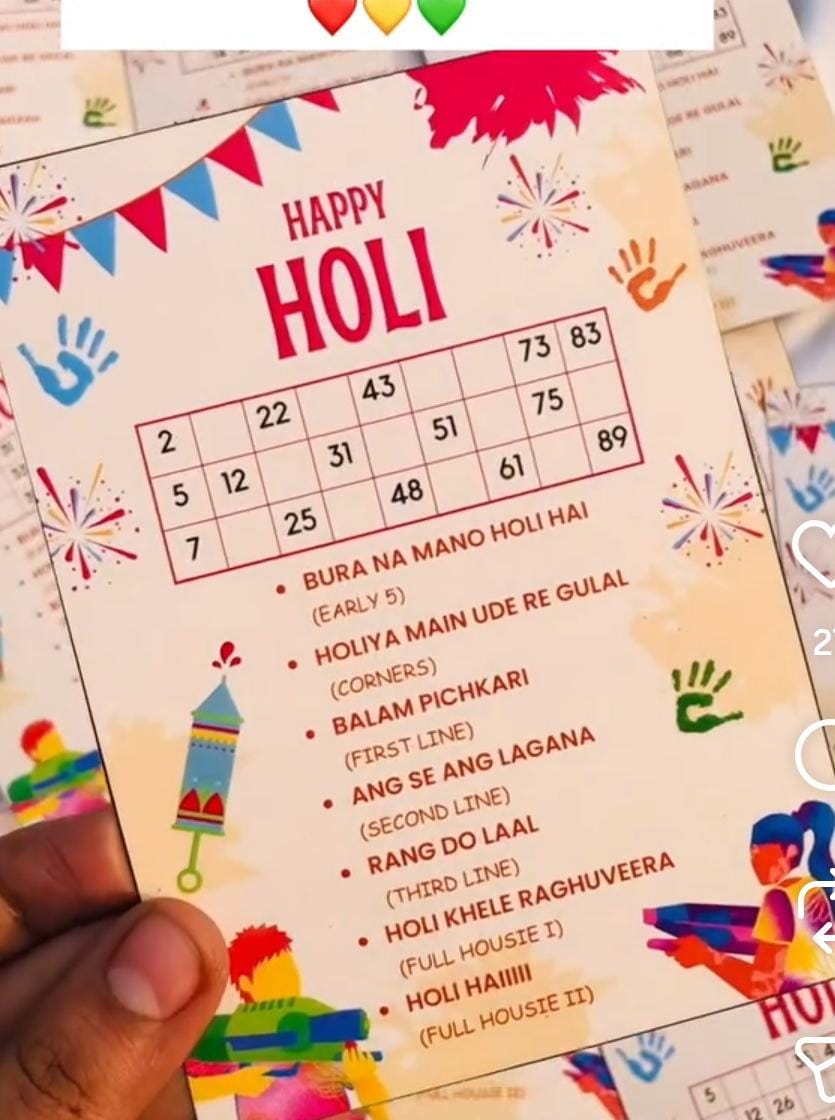 ❤️💛💚
HAPPY
HOLI
2 22 43 73 83
5 12 31 51 75
7 25 48 61 89
• BURA NA MANO HOLI HAI
(EARLY 5)
• HOLIYA MAIN UDE RE GULAL
(CORNERS)
• BALAM PICHKARI
(FIRST LINE)
• ANG SE ANG LAGANA
(SECOND LINE)
• RANG DO LAAL
(THIRD LINE)
• HOLI KHELE RAGHUVEERA
(FULL HOUSIE I)
• HOLI HAIIIII
(FULL HOUSIE II)
89
HOLI HAI
DE RE GULAL
AGANA
RAGHUVEERA
HO
5
12 26